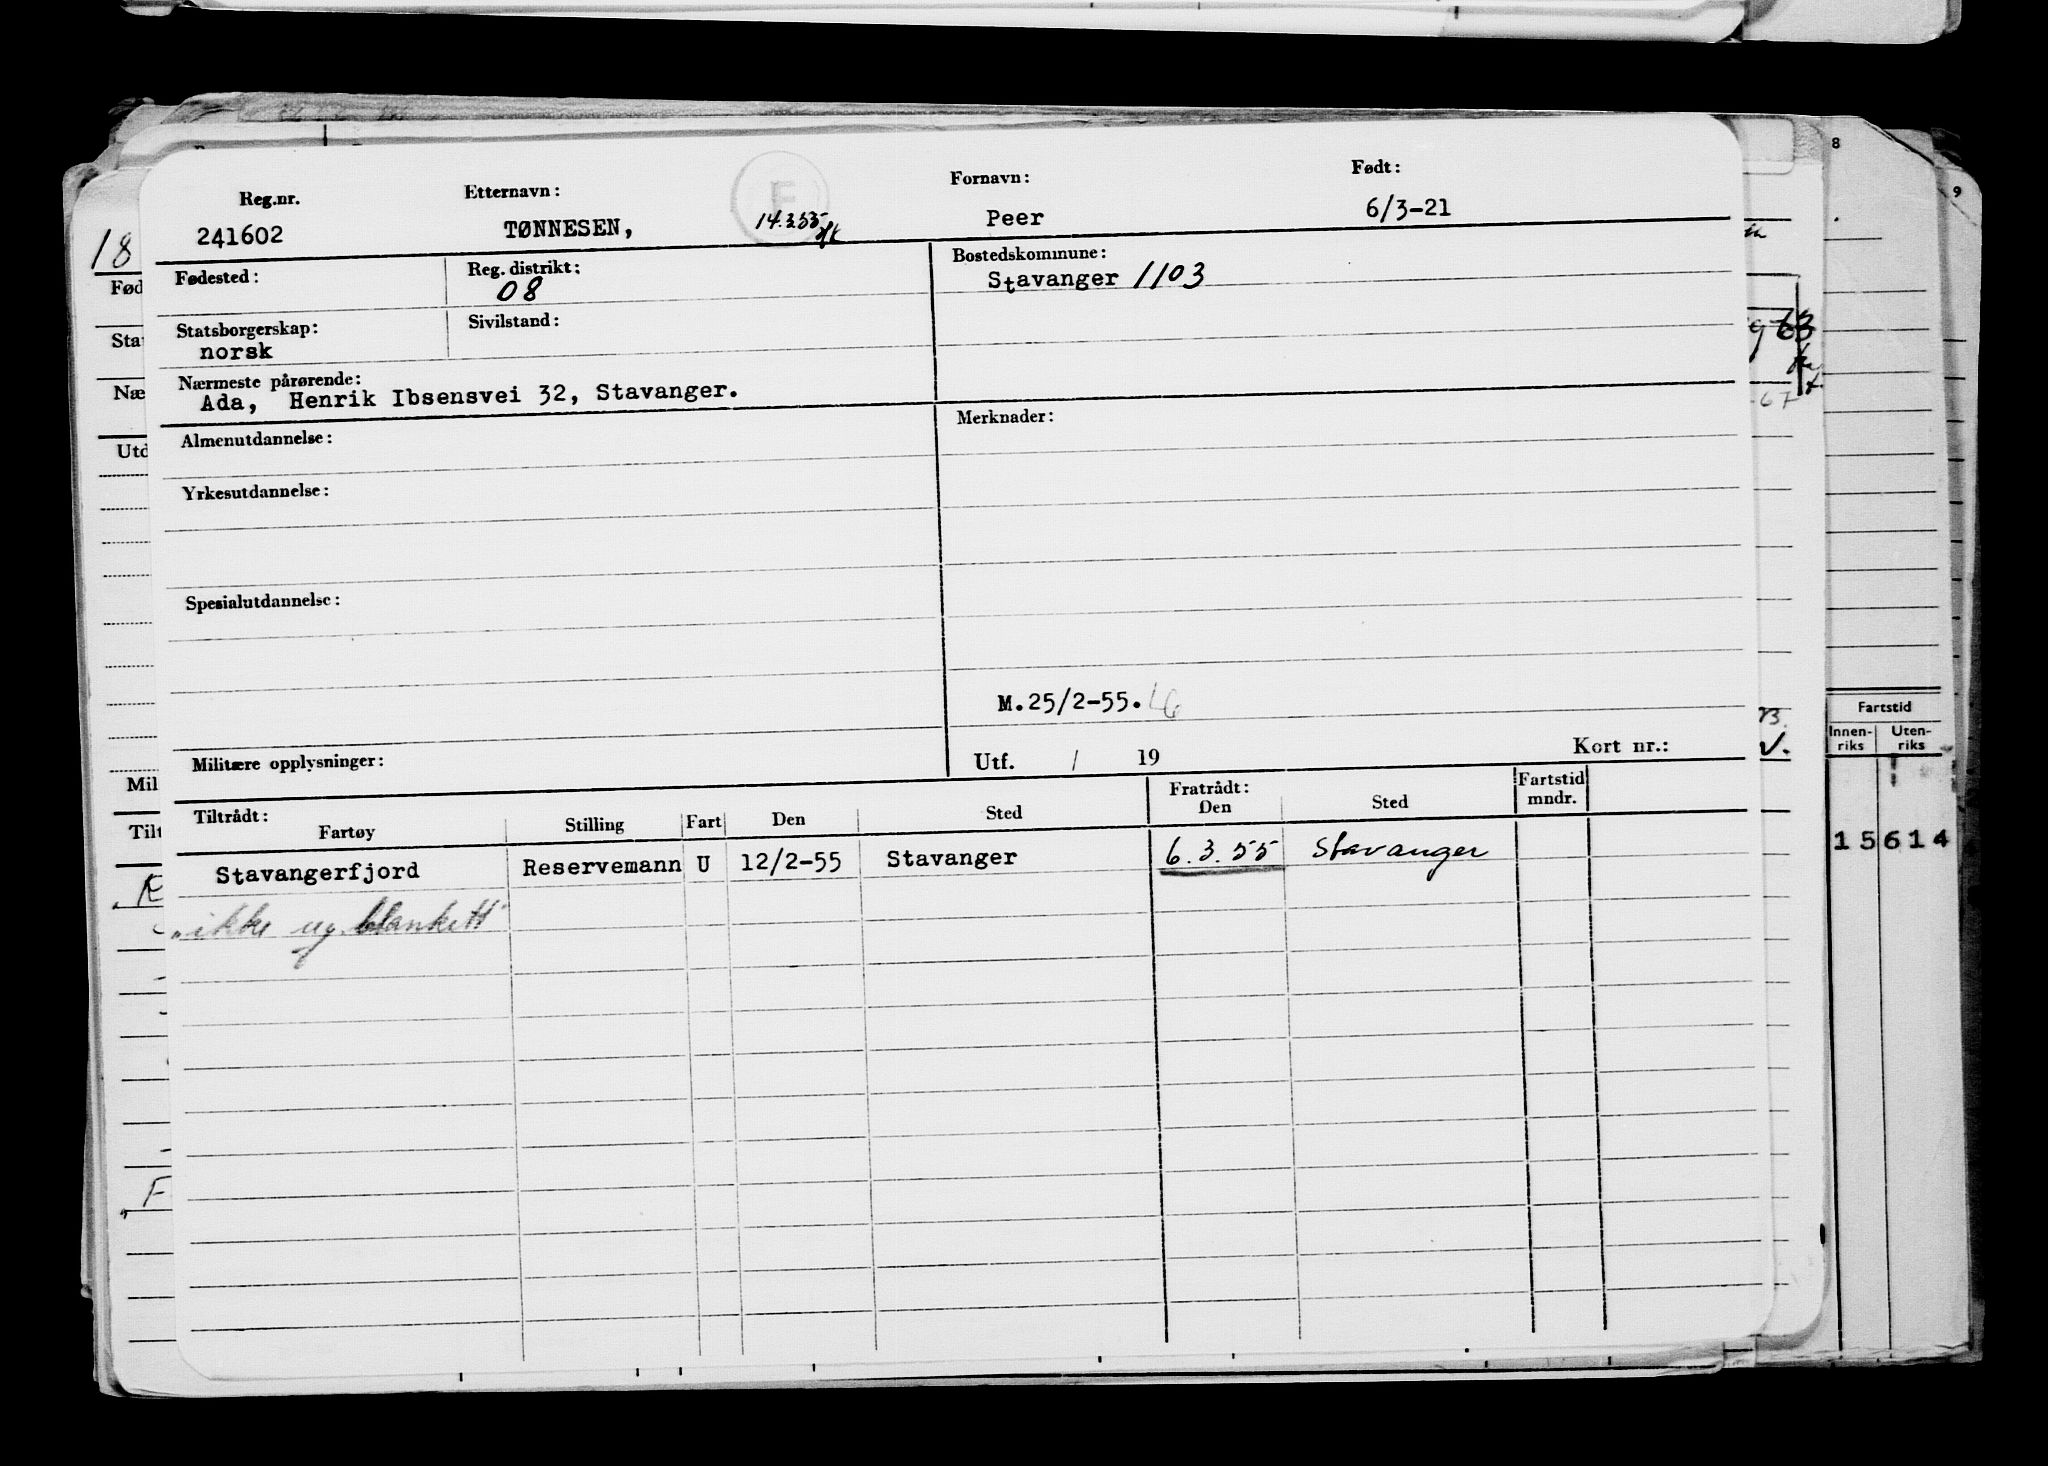 Reg.nr. Etternavn: F Fornavn: Født:
241602 TØNNESEN, Peer 6/3-21
Fødested: Reg. distrikt: Bostedskommune:
08 Stavanger 1103
Statsborgerskap: Sivilstand:
norsk
Nærmeste pårørende:
Ada, Henrik Ibsensvei 32, Stavanger.
Almenutdannelse: Merknader:
Yrkesutdannelse:
Spesialutdannelse:
M.25/2-55.
Militære opplysninger: Utf. / 19 Kort nr.:
Tiltrådt: Fratrådt: Fartstid
Fartøy Stilling Fart Den Sted Den Sted mndr.
Stavangerfjord Reservemann U 12/2-55 Stavanger 6.3.55 Stavanger
ikke ug. blankett
18
Fød
Sta
Næ
Utd
Mil
Tilt
F
8
9
63
67
Fartstid
Innen-
riks
Uten-
riks
15614